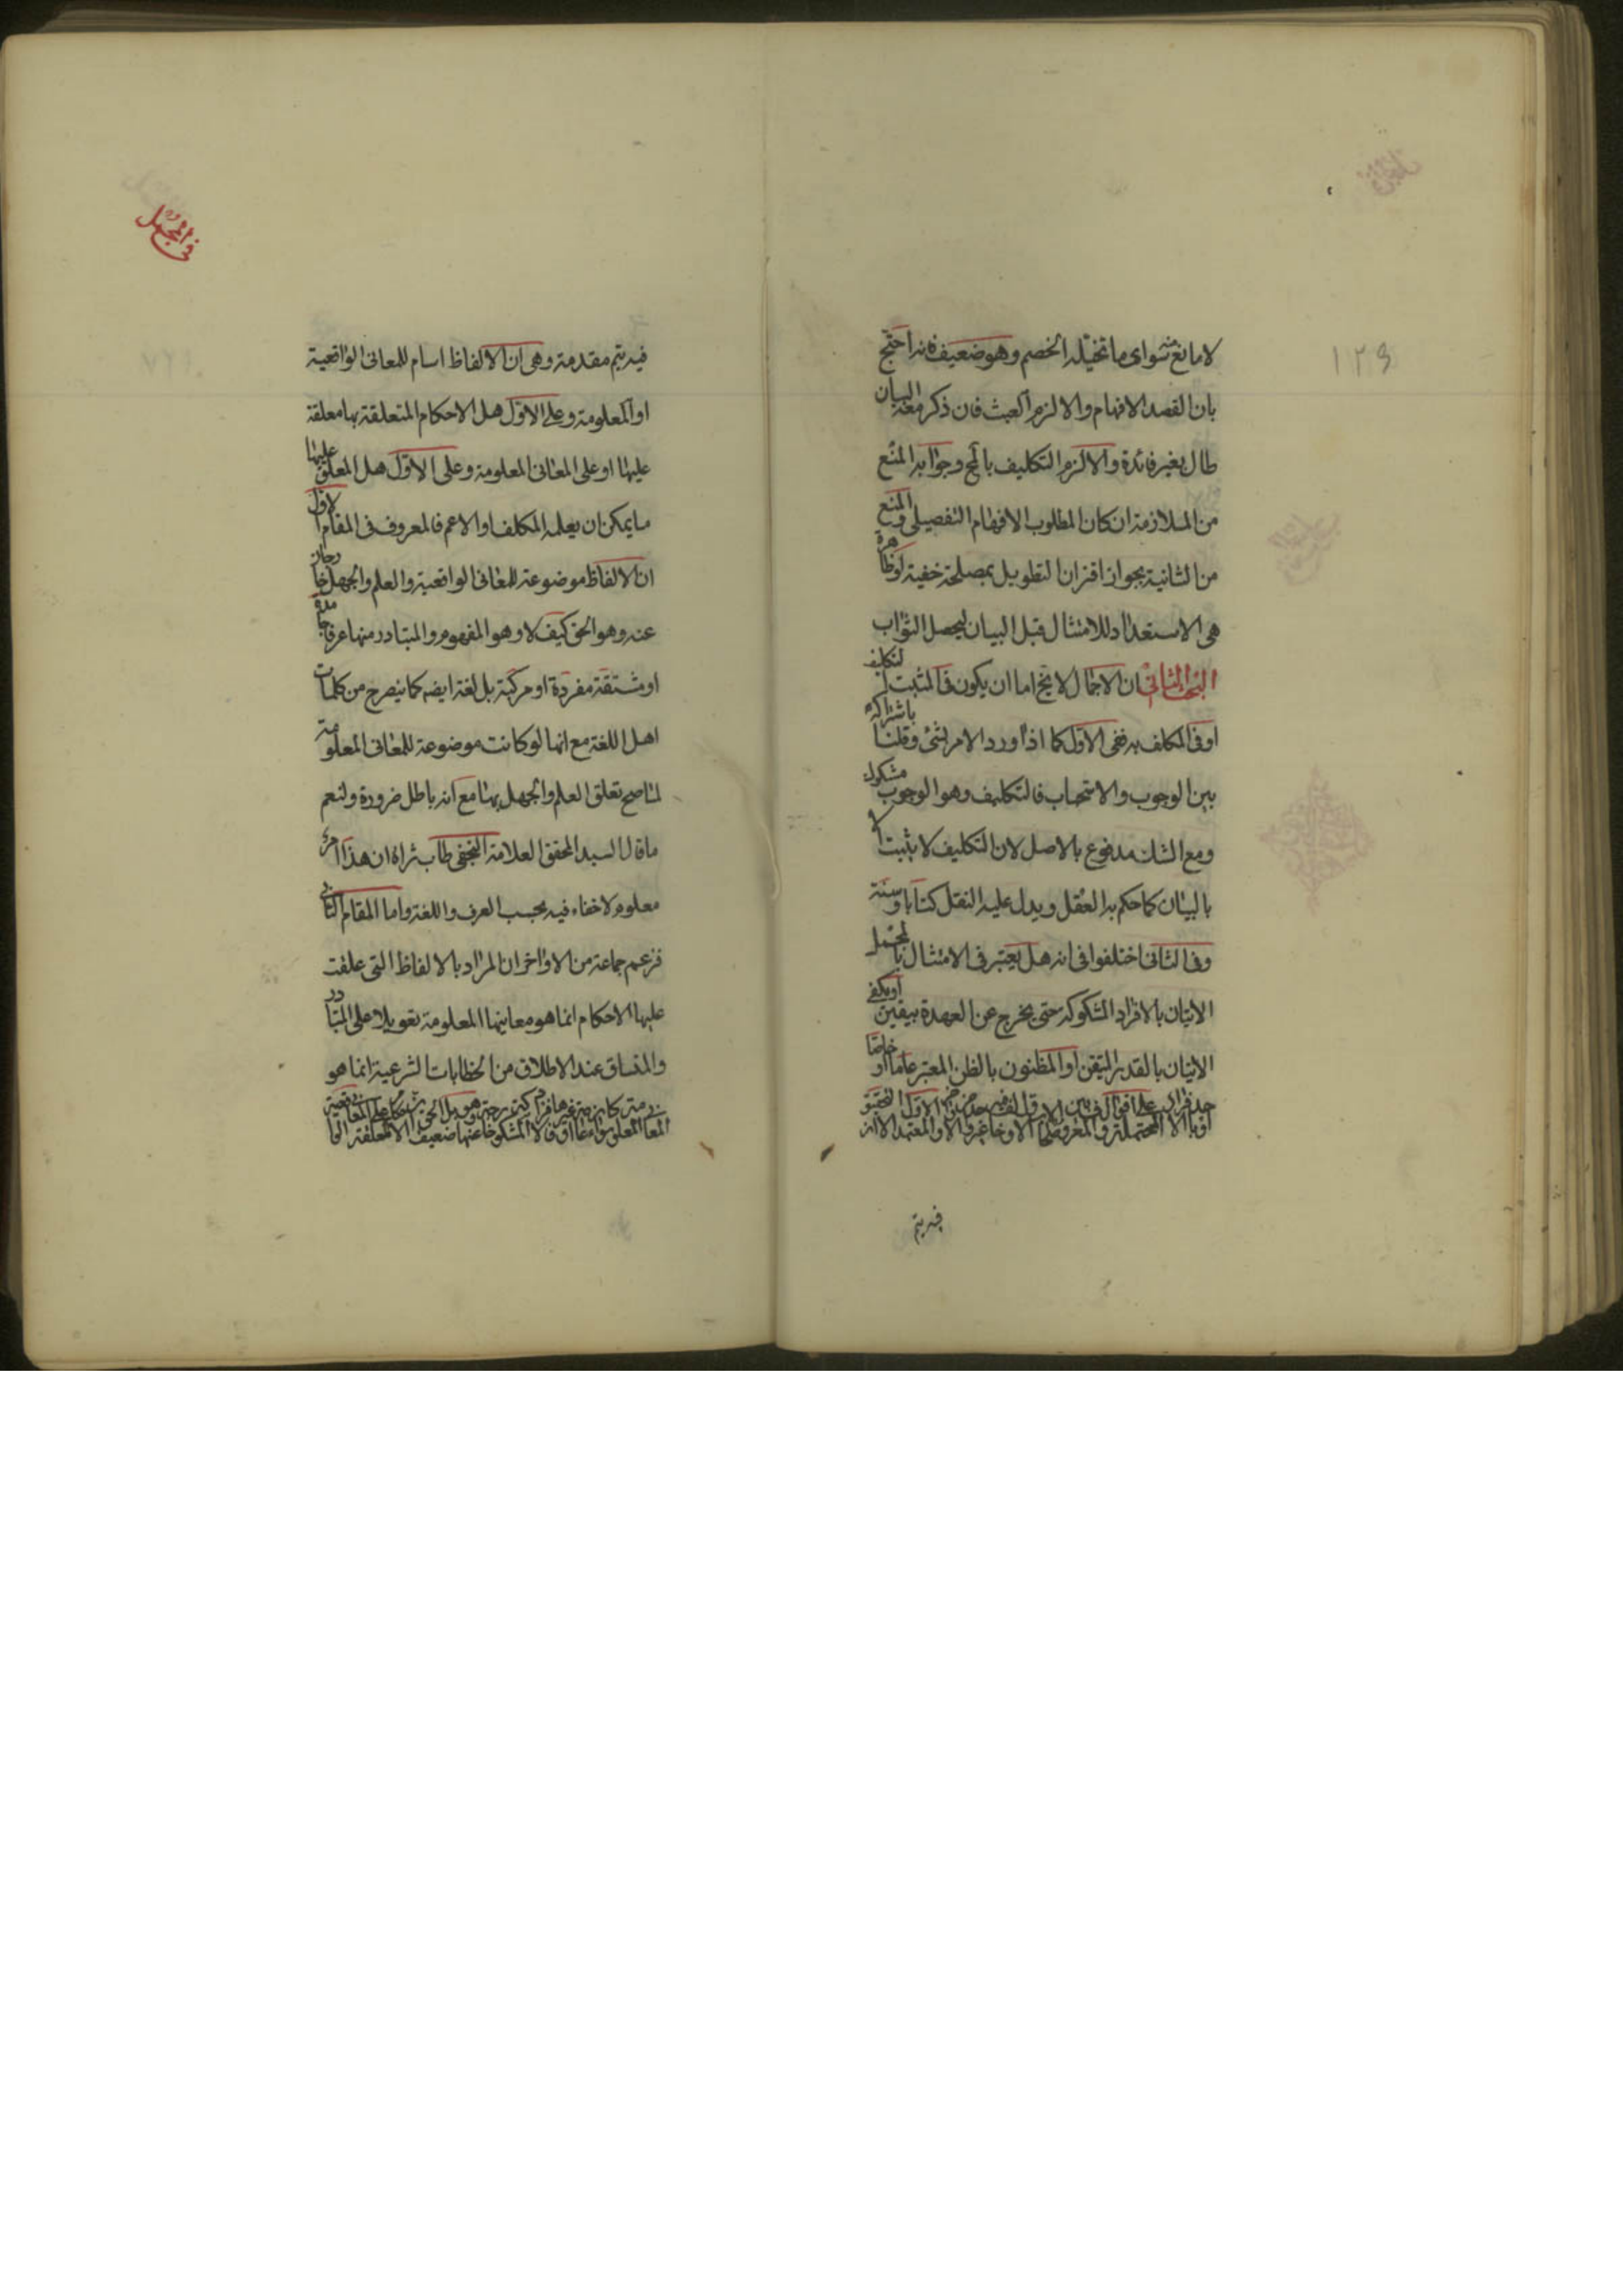 ١٢٩
لا مانع منه سوای ما تخیّله الخصم وهو ضعیف فانه احتج
بان القصد الافهام والا لزم العبث فان ذکر معه البیان
طال بغیر فائدة والا لزم التکلیف بالمح وجوابه المنع
من الملازمة ان کان المطلوب الافهام التفصیلی والمنع
من الثانیة بجواز اقتران التطویل بمصلحة خفیة اوظاهرة
هی الاستعداد للامتثال قبل البیان لیحصل الثواب
البحث الثانی ان الاجمال لایخ اما ان یکون فی المثبت لتکلیف
اوفی المکلف به ففی الاول کما اذا ورد الامر بشیٔ وقلنا باشتراکه
بین الوجوب والاستحباب فالتکلیف وهو الوجوب مشکوک
ومع الشک مدفوع بالاصل لان التکلیف لا یثبت الا
بالبیان کما حکم به العقل ویدل علیه النقل کتابا وسنة
وفی الثانی اختلفوا فی انه هل یعتبر فی الامتثال بالمجمل
الاتیان بالافراد المشکوکة حتی یخرج عن العهدة بیقین اویکفی
الاتیان بالقدر المتیقن او المظنون بالظن المعتبر عاما او خاصا
فیه یتم
فی المجمل
فیه یتم مقدمة وهی ان الالفاظ اسام للمعانی الواقعیة
او المعلومة وعلی الاوّل هل الاحکام المتعلقة بها معلقة
علیها او علی المعانی المعلومة وعلی الاوّل هل المعلق علیها
ما یمکن ان یعلمه المکلف او الاعم فالمعروف فی المقام الاول
ان الالفاظ موضوعة للمعانی الواقعیة والعلم والجهل خارجان
عنه وهو الحق کیف لا وهو المفهوم والمتبادر منها عرفا جامدة
او مشتقة مفردة او مرکبة بل لغة ایضا کما ینصرح من کلمات
اهل اللغة مع انها لو کانت موضوعة للمعانی المعلومة
لما صح تعلق العلم والجهل بها مع انه باطل ضرورة ولنعم
ما قال السید المحقق العلامة النجفی طاب ثراه ان هذا امر
معلوم لا خفاء فیه بحسب العرف واللغة واما المقام الثانی
فزعم جماعة من الاواخر ان المراد بالالفاظ التی علقت
علیها الاحکام انما هو معانیها المعلومة تعویلا علی المتبادر
والمنساق عند الاطلاق من الخطابات الشرعیة انما هو